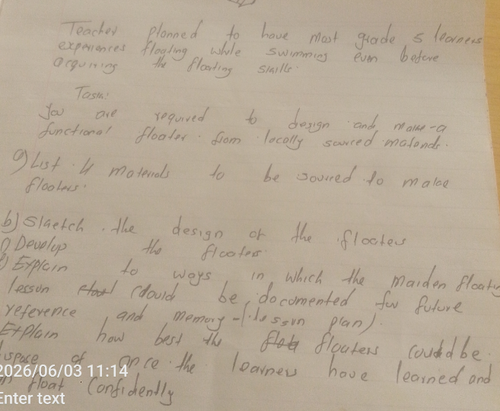 Teacher planned to have most grade 5 learners
experiences floating while swimming even before
acquiring the floating skills.
Task:
You are required to design and make a
functional floater from locally sourced materials.
a) List 4 materials to be sourced to make
floaters.
b) Sketch the design of the floaters
Develop the floaters
Explain to ways in which the maiden floating
lesson could be documented for future
reference and memory - (lesson plan)
Explain how best the floaters could be
of once the learners have learned and
float confidently
2026/06/03 11:14
Enter text